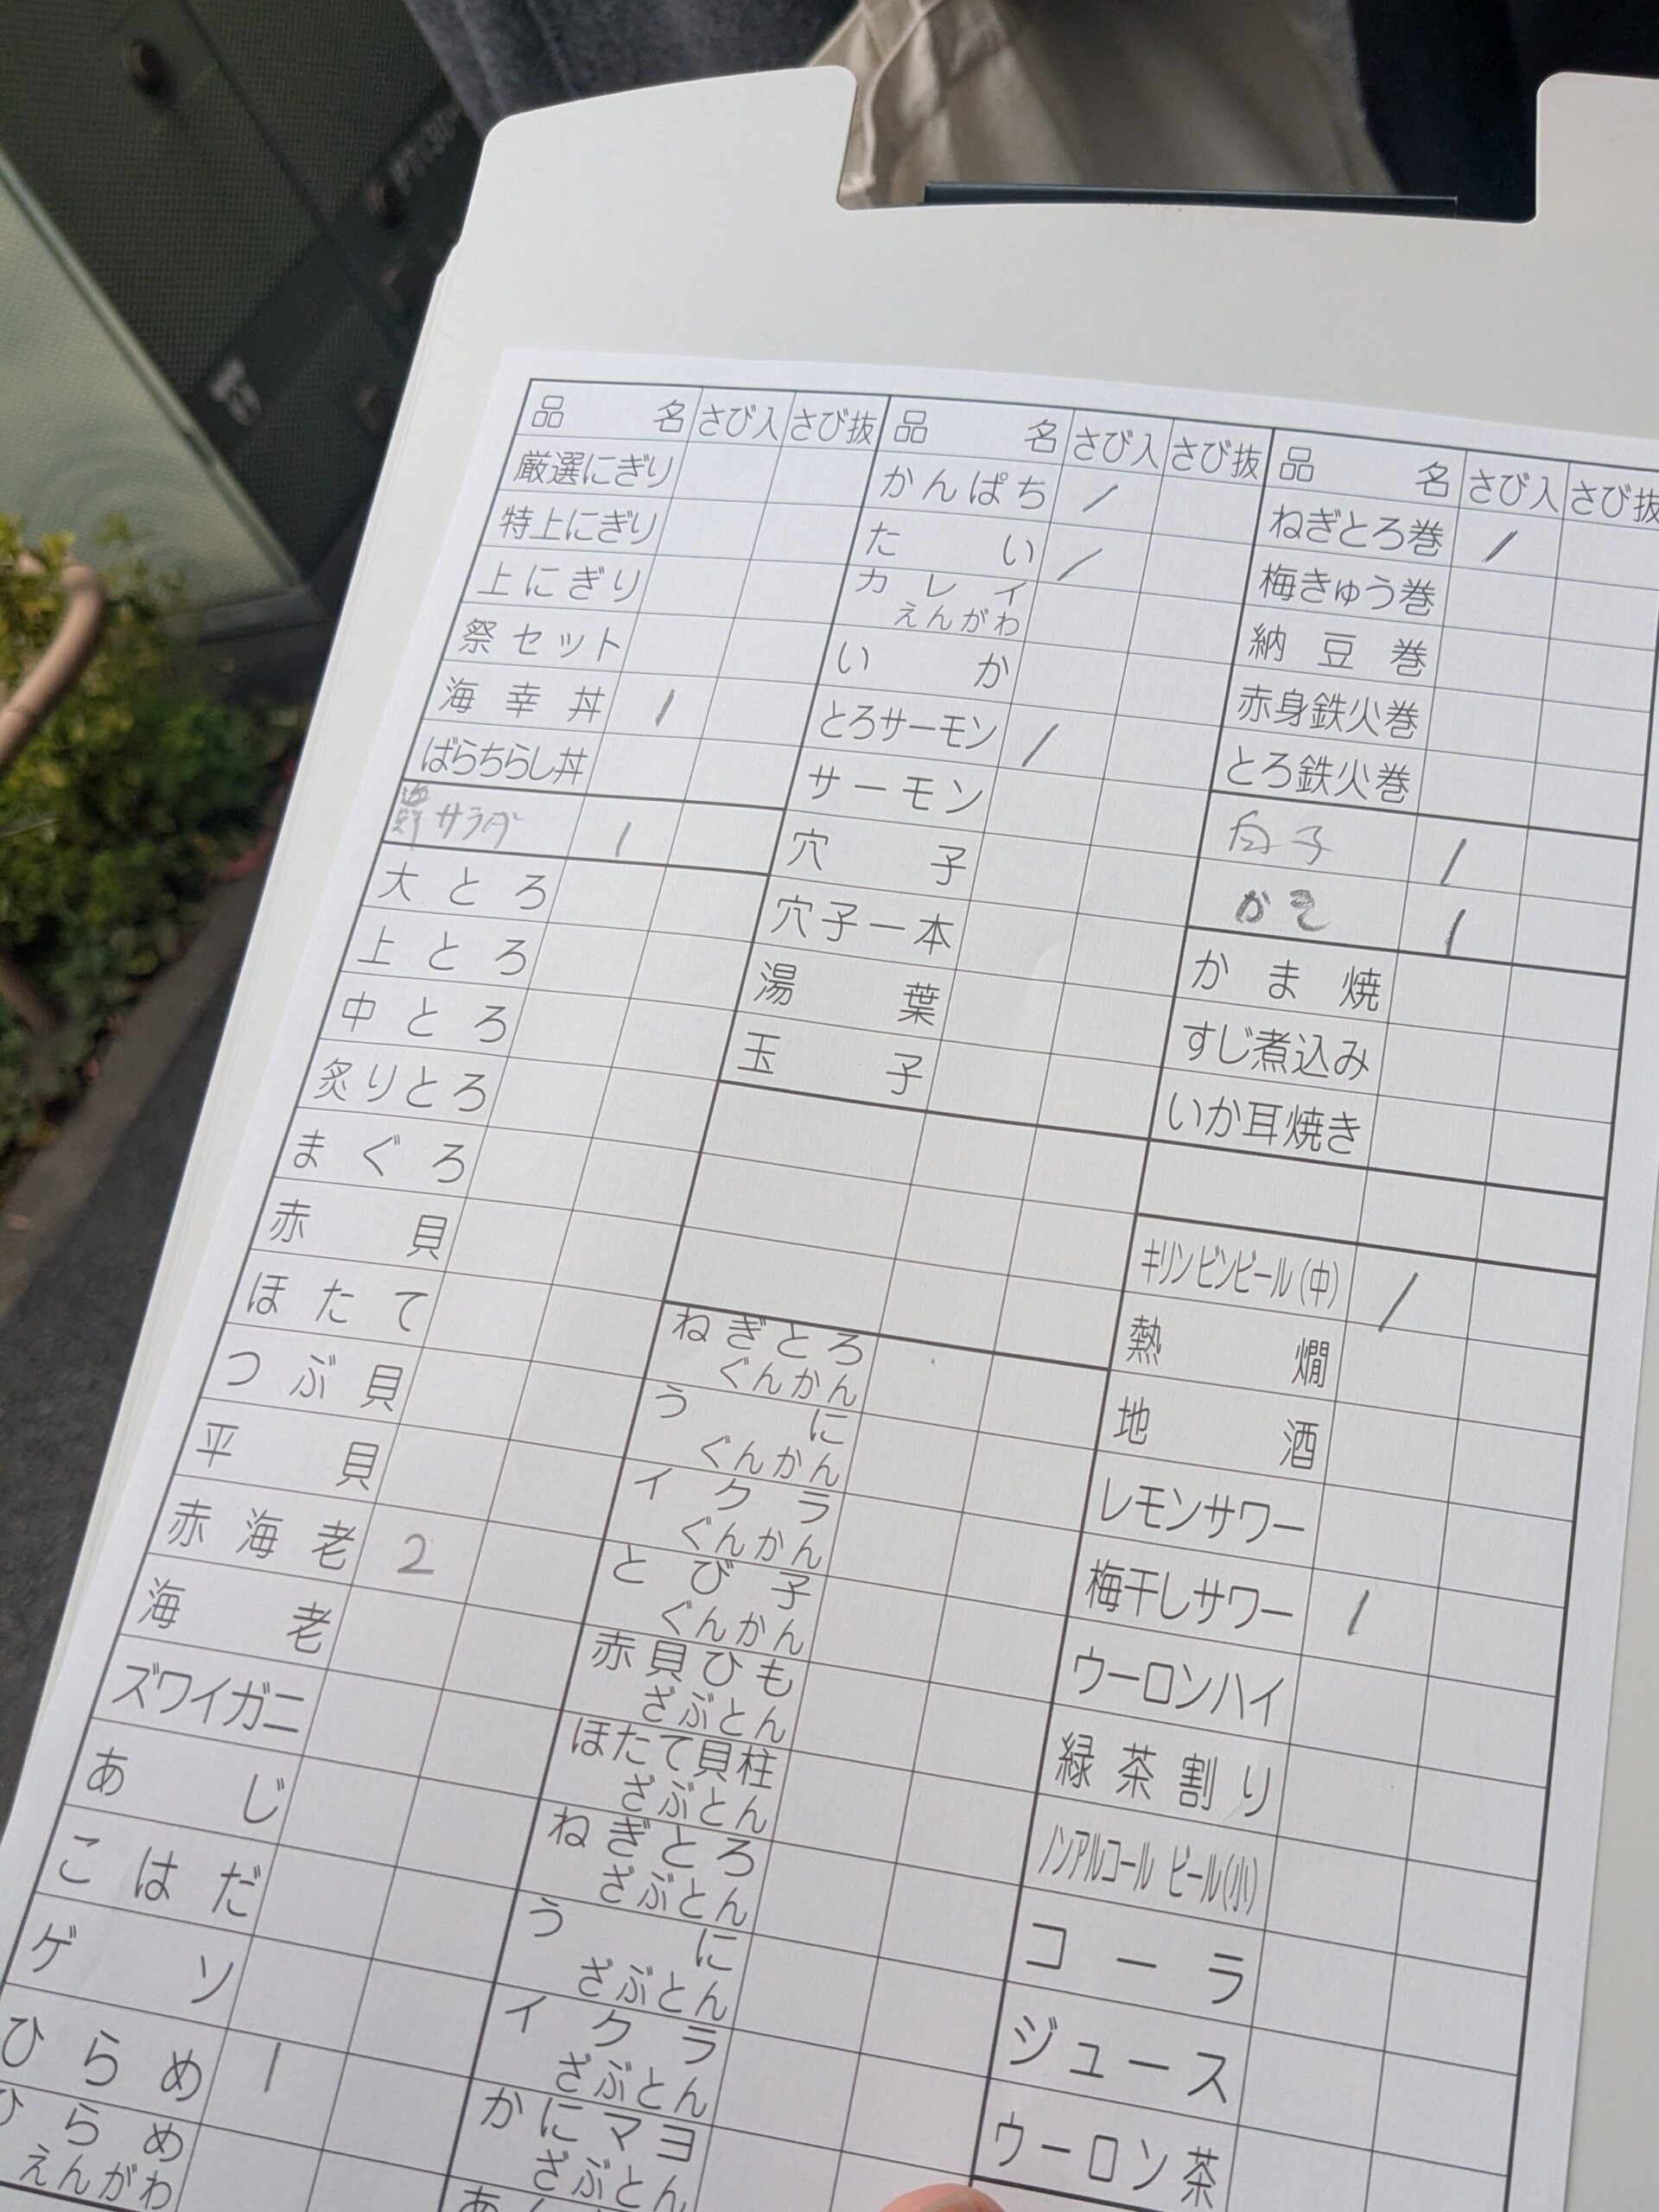 品名 さび入 さび抜 品名 さび入 さび抜 品名 さび入 さび抜
厳選にぎり
特上にぎり
上にぎり
祭セット
海幸丼 1
ばらちらし丼
サラダ 1
大とろ
上とろ
中とろ
炙りとろ
まぐろ
赤貝
ほたて
つぶ貝
平貝
赤海老 2
海老
ズワイガニ
あじ
こはだ
ゲソ
ひらめ 1
ひらめ
えんがわ
かんぱち /
たい /
カレイ
えんがわ
いか
とろサーモン /
サーモン
穴子
穴子一本
湯葉
玉子
ねぎとろ
ぐんかん
うに
ぐんかん
イクラ
ぐんかん
とび子
ぐんかん
赤貝ひも
ざぶとん
ほたて貝柱
ざぶとん
ねぎとろ
ざぶとん
うに
ざぶとん
イクラ
ざぶとん
かにマヨ
ざぶとん
ねぎとろ巻 /
梅きゅう巻
納豆巻
赤身鉄火巻
とろ鉄火巻
白子 /
かき /
かま焼
すじ煮込み
いか耳焼き
キリンビンビール(中) /
熱燗
地酒
レモンサワー
梅干しサワー /
ウーロンハイ
緑茶割り
ノンアルコールビール(小)
コーラ
ジュース
ウーロン茶